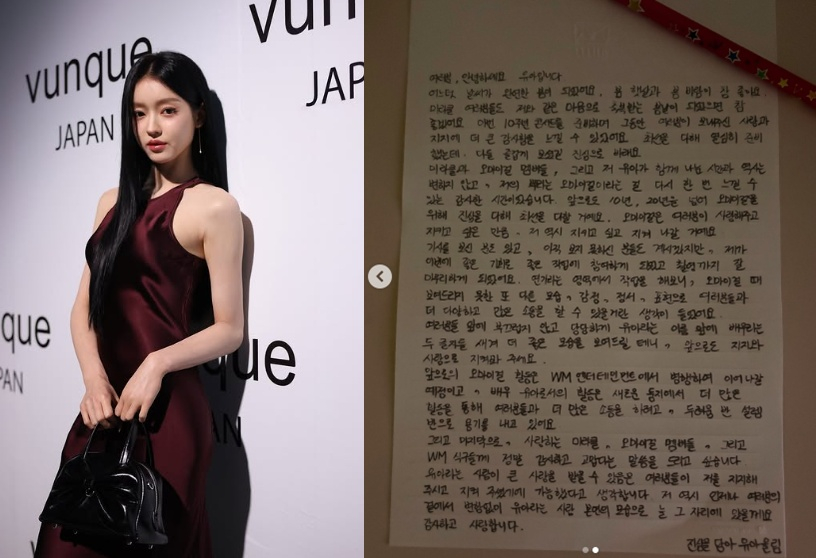 vunque
JAPAN
vunque
JAP
que
PAN
que
AN
여러분, 안녕하세요 유아입니다
어느덧 날씨가 완연한 봄이 되었어요, 봄 햇살과 봄 바람이 참 좋아요.
미라클 여러분들도 저와 같은 마음으로 행복한 봄날이 되었으면 참
좋겠어요 이번 10주년 콘서트를 준비하며 그동안 여러분이 보내주신 사랑과
지지에 더 큰 감사함을 느낄 수 있었어요. 최선을 다해 열심히 준비
했는데. 다들 즐겁게 보셨길 진심으로 바래요.
미라클과 오마이걸 멤버들, 그리고 저 유아가 함께 나눈 시간과 역사는
변하지 않고, 저의 뿌리는 오마이걸이라는 걸 다시 한 번 느낄 수
있는 감사한 시간이었습니다. 앞으로도 10년, 20년을 넘어 오마이걸을
위해 진심을 다해 최선을 다할 거예요. 오마이걸은 여러분이 사랑해주고
지키고 싶은 만큼 저 역시 지키고 싶고 지켜 나갈 거예요.
기사를 보신 분도 있고, 아직 보지 못하신 분들도 계시겠지만, 제가
이번에 좋은 기회로 좋은 작업에 참여하게 되었고 촬영까지 잘
마무리하게 되었어요. 연기라는 영역에서 작업을 해보니, 오마이걸 때
보여드리지 못한 또 다른 모습, 감정, 정서, 표현으로 여러분들과
더 다양하고 많은 소통을 할 수 있을거란 생각이 들었어요.
여러분들 앞에 부끄럽지 않고 당당하게 유아라는 이름 앞에 배우라는
두 글자를 새겨 더 좋은 모습을 보여드릴 테니, 앞으로도 지지와
사랑으로 지켜봐 주세요.
앞으로의 오마이걸 활동은 WM 엔터테인먼트에서 병행하여 이어나갈
예정이고, 배우 유아로서의 활동은 새로운 둥지에서 더 많은
활동을 통해 여러분들과 더 많은 소통을 하려고, 두려움 반 설렘
반으로 용기를 내고 있어요
그리고 마지막으로, 사랑하는 미라클, 오마이걸 멤버들, 그리고
WM 식구들께 정말 감사하고 고맙다는 말씀을 드리고 싶습니다
유아라는 사람이 큰 사랑을 받을 수 있음은 여러분들이 저를 지지해
주시고 지켜 주셨기에 가능했다고 생각합니다. 저 역시 언제나 여러분의
곁에서 변함없이 유아라는 사람 본연의 모습으로 늘 그 자리에 있을게요
감사하고 사랑합니다.
진심을 담아 유아올림